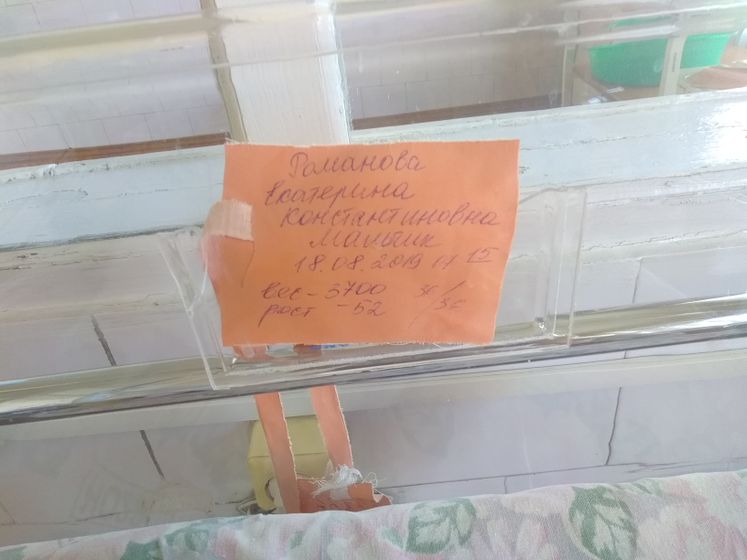 Романова
Екатерина
Константиновна
Мальчик
18.08.2019 17 15
вес - 3700
рост - 52